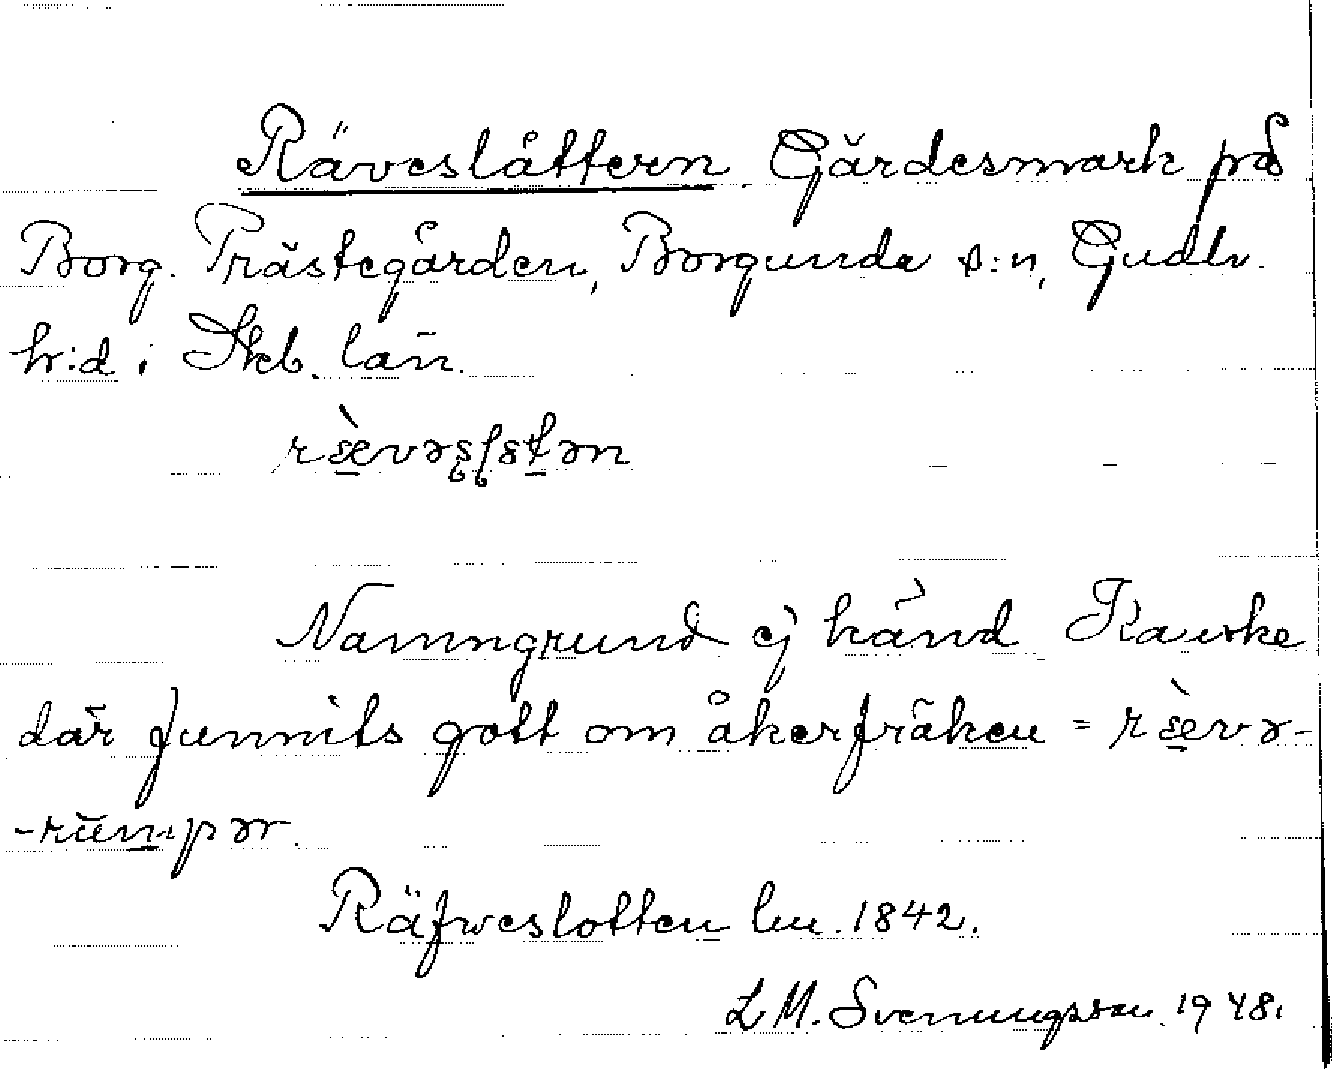 Räveslåttern. Gärdesmark på
Borg. Prästegården, Borgunda s:n, Gudh.
h:d i Skb. län.
Namngrund ej känd Kanske
där funnits gott om åkerfräken = rævə-
-rumpər.
Räfweslotten lm. 1842.
L M. Svenungsson. 1948.